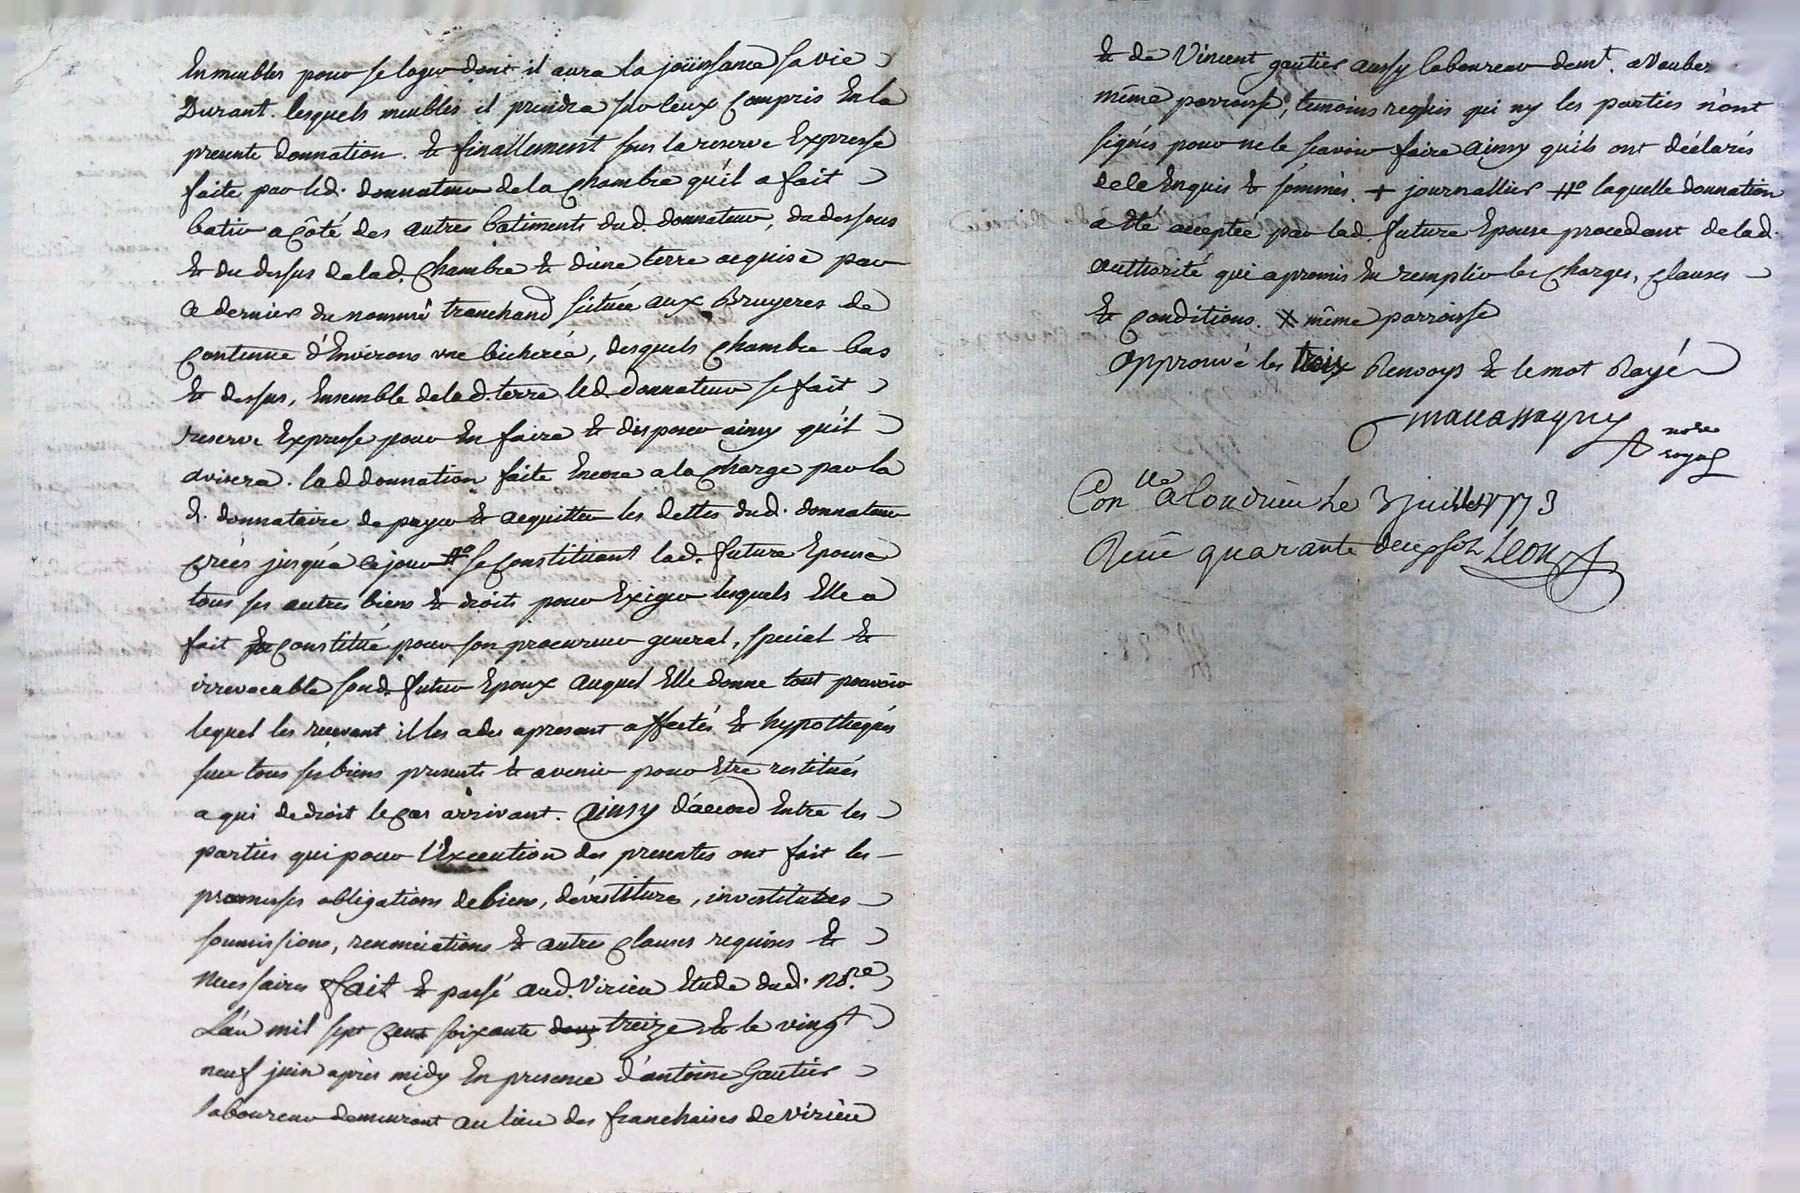 En meubles pour se loger dont il aura la joüissance sa vie
Durant. lesquels meubles il prendra sur ceux compris En la
presente donnation. & finallement sous la reserve Expresse
faite par led. donnateur de la chambre qu'il a fait
batir a côté des autres batiments dud. donnateur, du dessous
& du dessus de lad. chambre & d'une terre acquise par
ce dernier du nommé tranchand scituée aux Bruyeres de
contenue d'Environs une bicherée, desquels chambre bas
& dessus, Ensemble de lad. terre led. donnateur se fait
reserve Expresse pour En faire & disposer ainsy qu'il
avisera. lad donnation faite Encore a la charge par la
d. donnataire de payer & acquitter les dettes dud. donnateur
créés jusqu'a ce jour # se constituant lad. future Epouse
tous ses autres biens & droits pour Exiger lesquels Elle a
fait & constitué pour son procureur general, special &
irrevocable sond. futur Epoux auquel Elle donne tout pouvoir
lequel les recevant il les a des apresent affectés & hypothequés
sur tous ses biens presents & avenir pour Etre restitués
a qui de droit le cas arrivant. Ainsy d'accord Entre les
parties qui pour l'Execution des presentes ont fait les
promesses obligations de biens, devestiture, investitures
soumissions, renonciations & autres clauses requises &
necessaires fait & passé aud. Virieu Etude dud. no.re
L'an mil sept cent soixante douze treize & le vingt
neuf juin après midy En presence d'antoine Gautier
laboureur demeurant au lieu des franchises de Virieu
& de Vincent gautier aussy laboureur demt. a Vauber
même parroisse, temoins requis qui ny les parties n'ont
signés pour ne le sçavoir faire Ainsy qu'ils ont déclarés
de ce Enquis & sommés. + journallier # laquelle donnation
a été acceptée par lad. future Epouse procedant de lad.
authorité qui a promis En remplir les charges, clauses
& conditions. X même parroisse
Approuvé les trois Renvoys & le mot Rayé
nore
royal
Con.lle a Condrieu Le 3 juillet 1773
Reçu quarante deux sols Léon